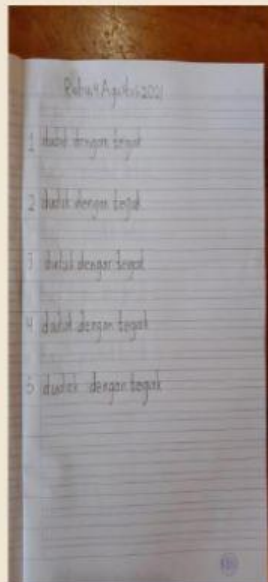 Rabu 4 Agustus 2021
1 duduk dengan tegak
2 duduk dengan tegak
3 duduk dengan tegak
4 duduk dengan tegak
5 duduk dengan tegak